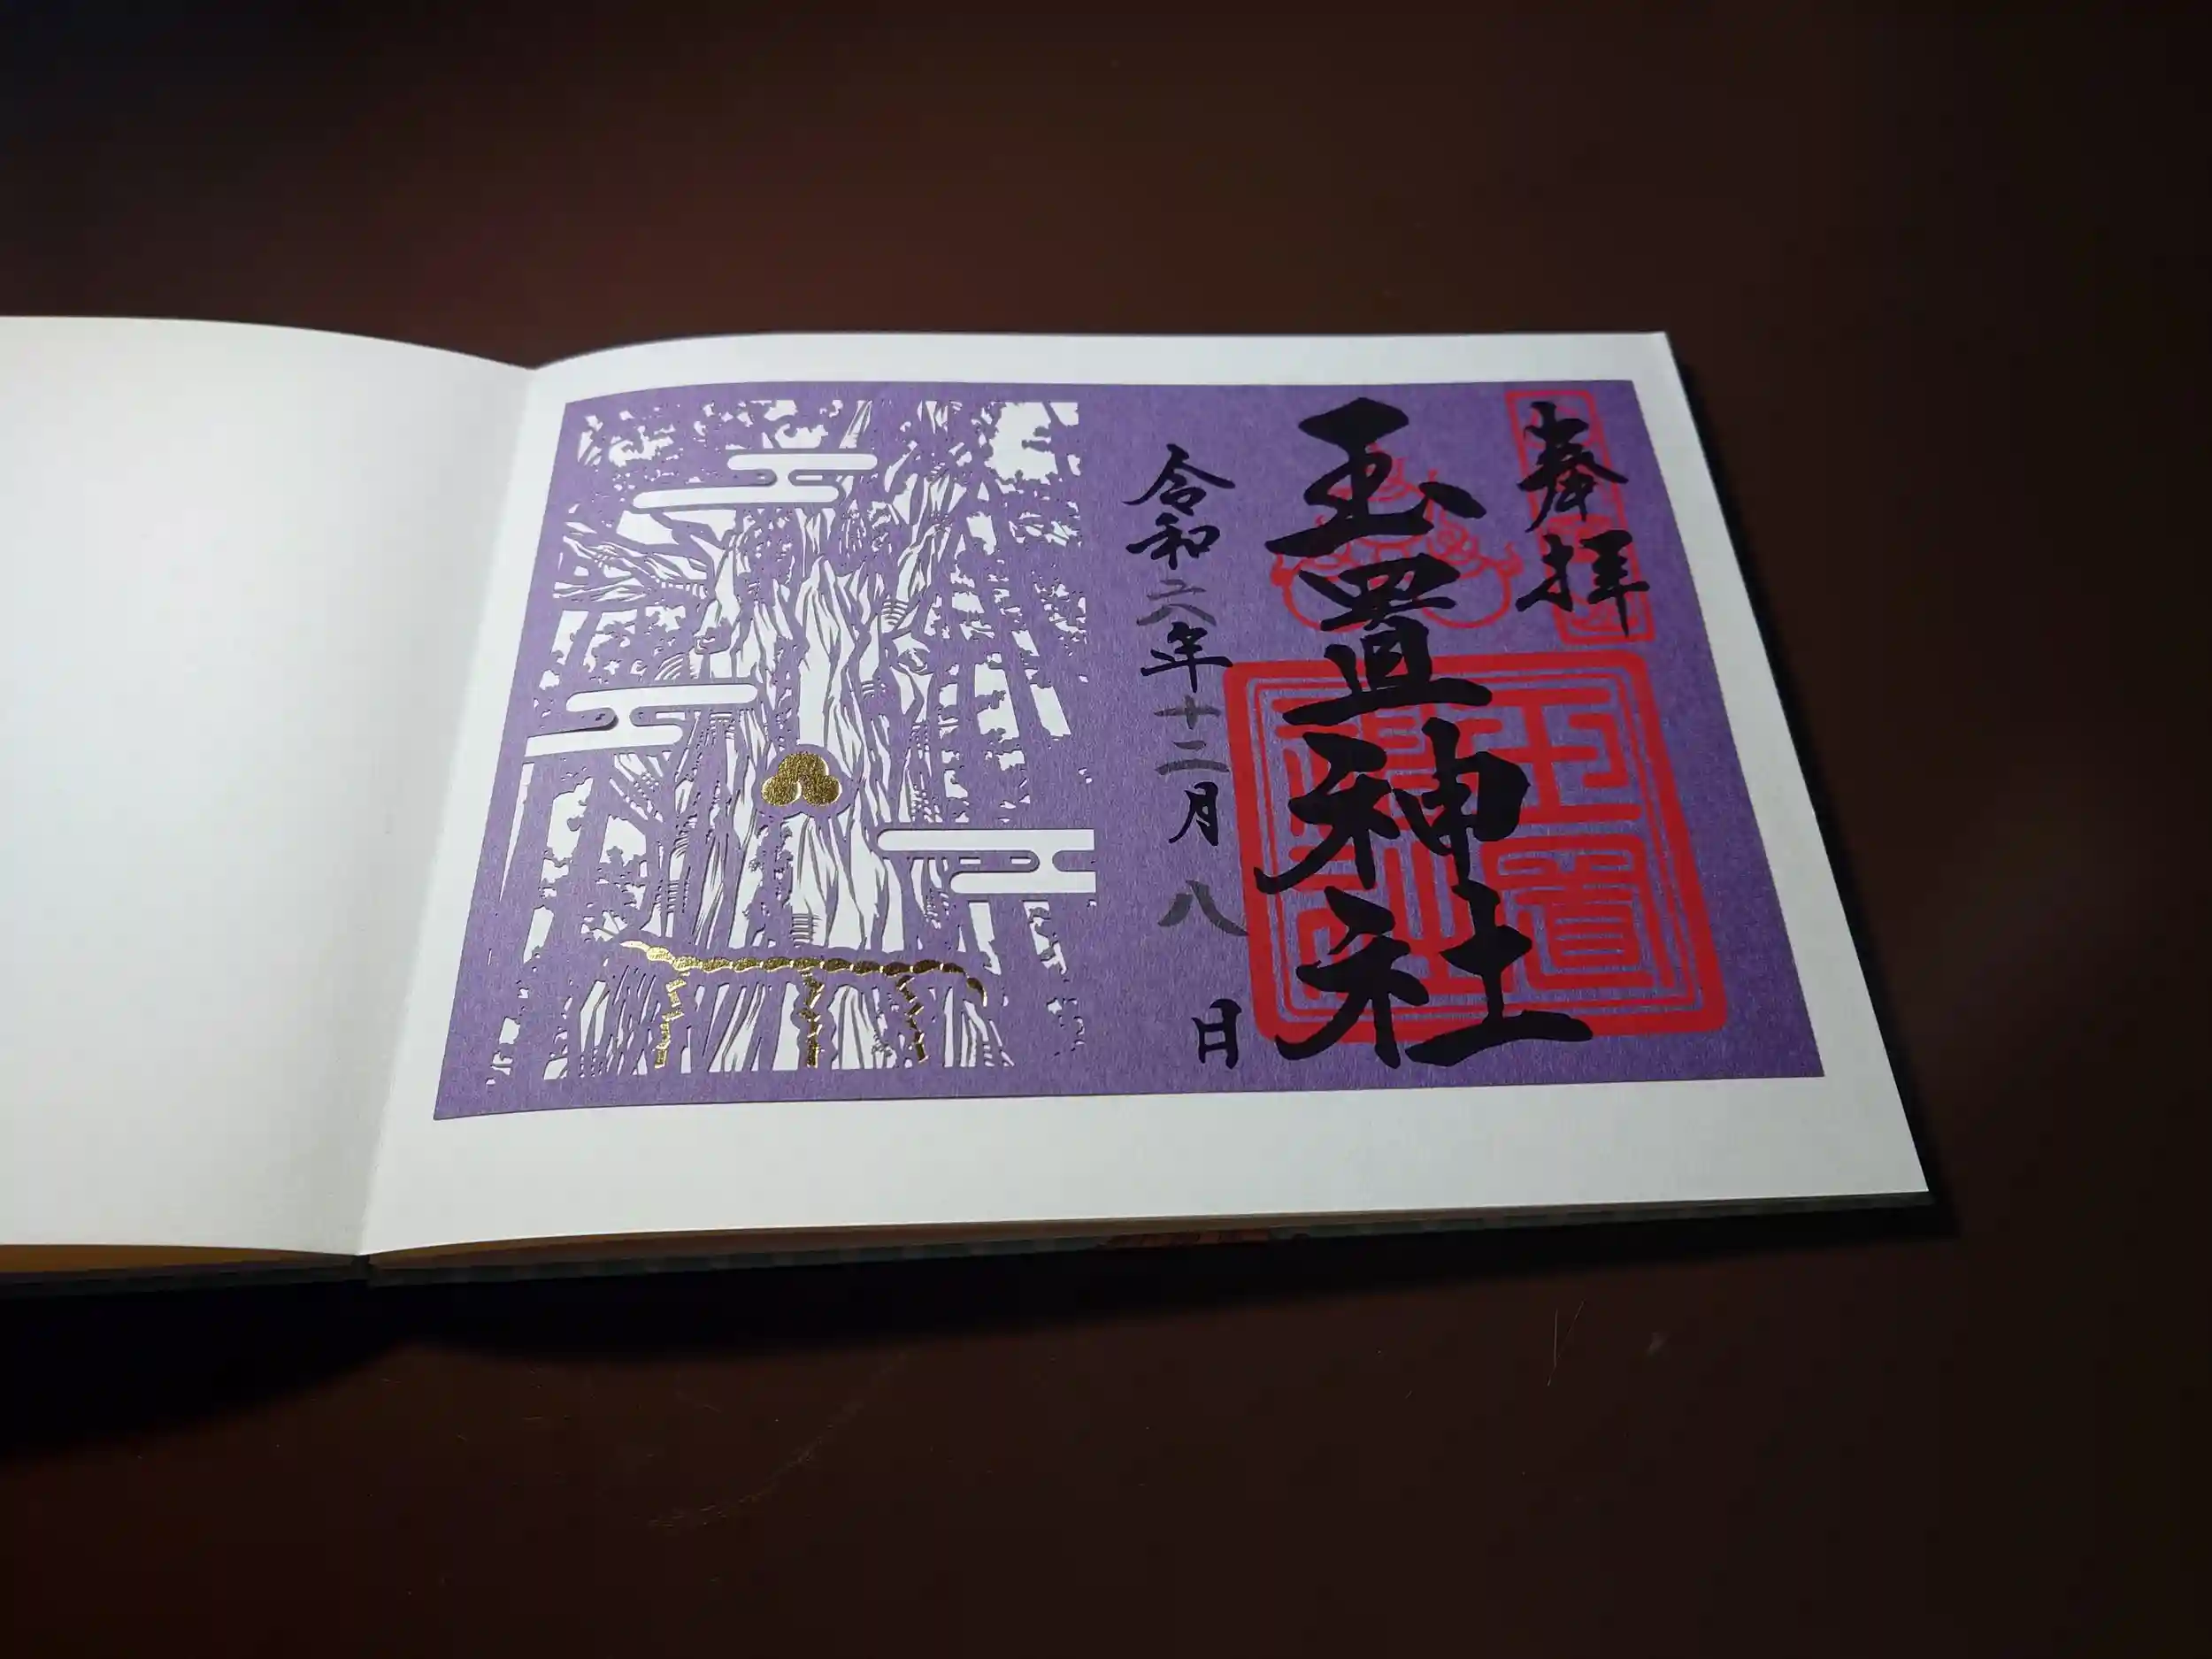 奉拝
玉置神社
令和六年十二月八日
玉置神社